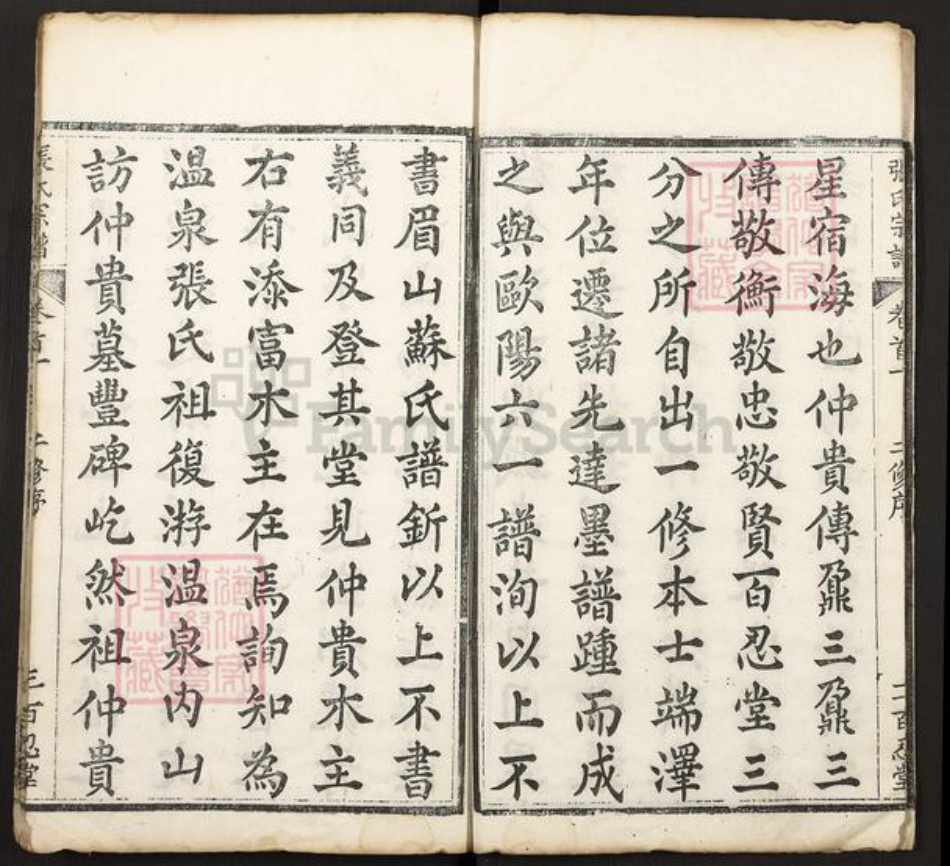 張氏宗譜 卷首一 二修序 二 百忍堂
星宿海也仲貴傳鼐三鼐三
傳敬衡敬忠敬賢百忍堂三
分之所自出一修本士端澤
年位遷諸先達墨譜踵而成
之與歐陽六一譜洵以上不
書眉山蘇氏譜釿以上不書
義同及登其堂見仲貴木主
右有添富木主在焉詢知為
溫泉張氏祖復游溫泉內山
訪仲貴墓豐碑屹然祖仲貴
張氏宗譜 卷首一 二修序 三 百忍堂
FamilySearch